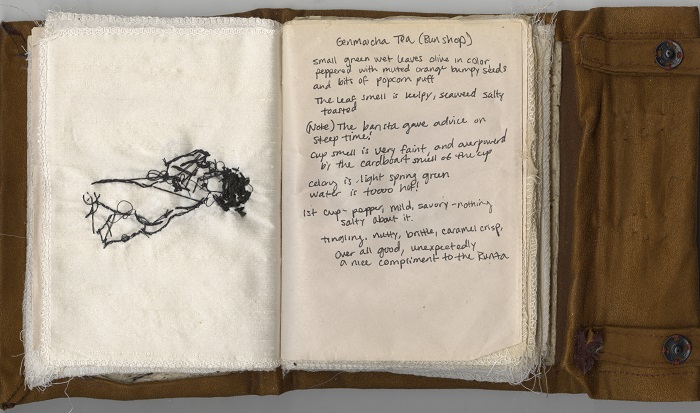 Genmaicha Tea (Bun shop)
small green wet leaves olive in color
peppered with muted orange bumpy seeds
and bits of popcorn puff
The leaf smell is kelpy, seaweed salty
toasted
(Note) The barista gave advice on
steep time!
cup smell is very faint, and overpowerd
by the cardboart smell of the cup
coloring is light spring green
water is toooo hot!
1st cup - pepper, mild, savory - nothing
salty about it.
tingling. nutty, brittle, caramel crisp,
over all good, unexpectedly
a nice compliment to the